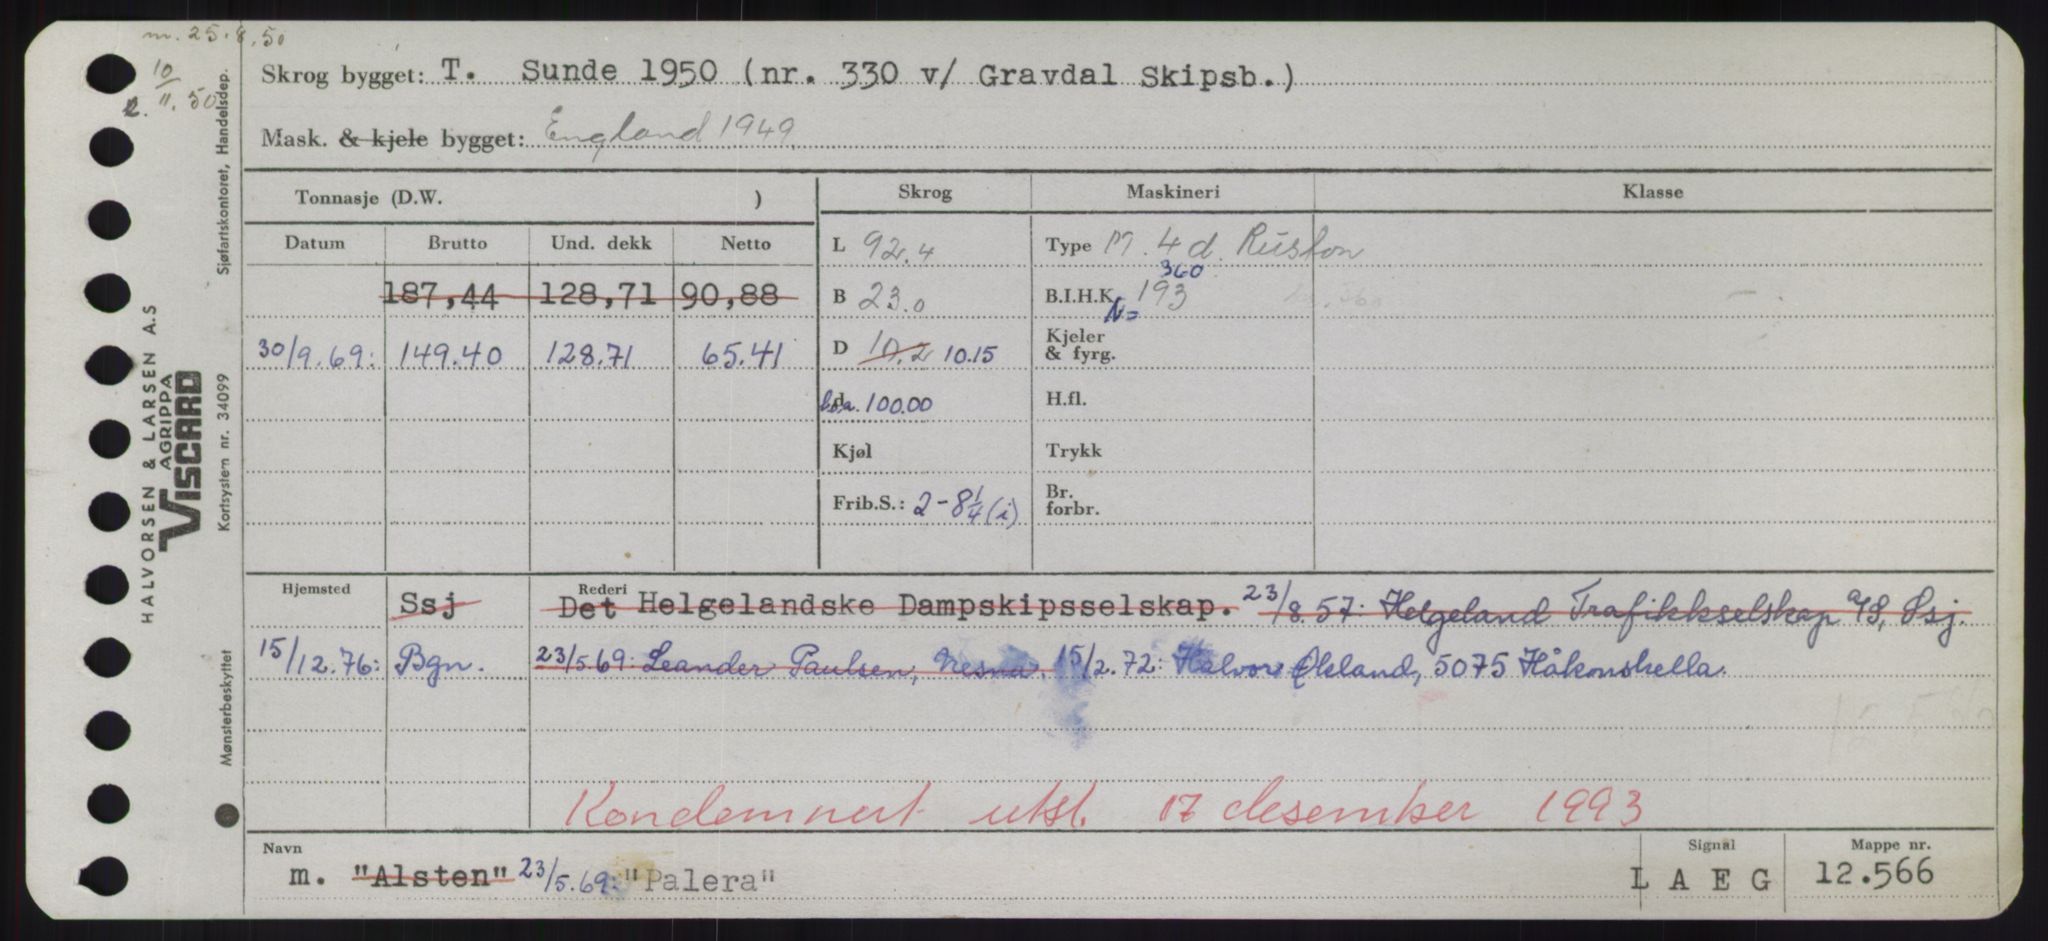 m. 25.8.50
10/11.50
Skrog bygget: T. Sunde 1950 (nr. 330 v/ Gravdal Skipsb.)
Mask. & kjele bygget: England 1949.
Tonnasje (D.W. ) Skrog Maskineri Klasse
Datum Brutto Und. dekk Netto L 92.4 Type M. 4 d. Ruston
187,44 128,71 90,88 B 23.0 B.I.H.K. 193 360
N=
30/9.69: 149.40 128.71 65.41 D 10.2 10.15 Kjeler & fyrg.
l.o.a. 100.00 H.fl.
Kjøl Trykk
Frib.S.: 2-8¼ (i) Br. forbr.
Hjemsted Rederi
Ssj Det Helgelandske Dampskipsselskap. 23/8.57: Helgeland Trafikkselskap A/S, Ssj.
15/12.76: Bgn. 23/5.69: Leander Paulsen, Nesna. 15/2.72: Halvor Økland, 5075 Håkonshella.
Kondemnert utsl. 17 desember 1993
Navn Signal Mappe nr.
m. "Alsten" 23/5.69: "Palera" L A E G 12.566
HALVORSEN & LARSEN A.S
AGRIPPA
VISCARD
Mønsterbeskyttet Kortsystem nr. 34099 Sjøfartskontoret, Handelsdep.